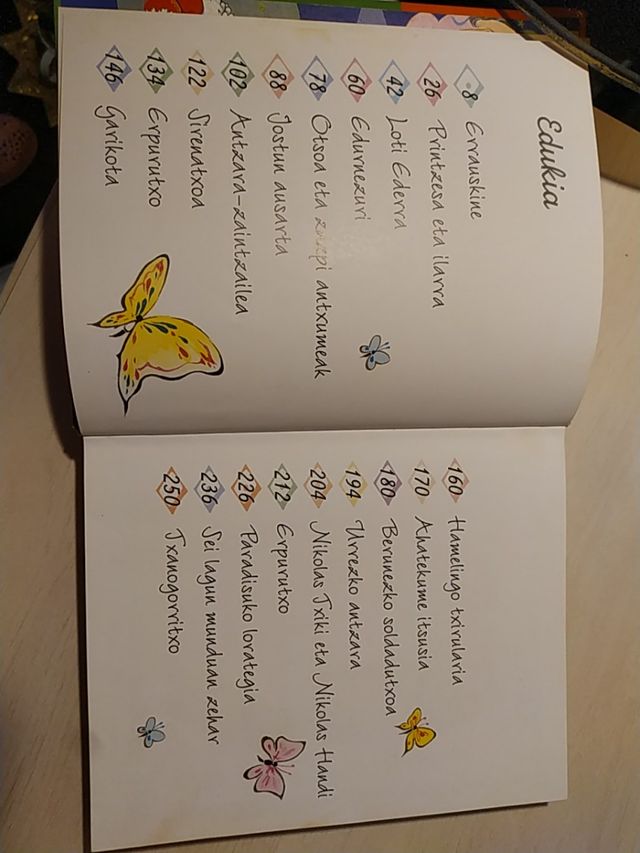 Edukia
8 Errauskine
26 Printzesa eta ilarra
42 Loti Ederra
60 Edurnezuri
78 Otsoa eta zazpi antxumeak
88 Jostun ausarta
102 Antzara-zaintzailea
122 Sirenatxoa
134 Erpurutxo
146 Garikota
160 Hamelingo txirularia
170 Ahatekume itsusia
180 Berunezko soldadutxoa
194 Urrezko antzara
204 Nikolas Txiki eta Nikolas Handi
212 Erpurutxo
226 Paradisuko lorategia
236 Sei lagun munduan zehar
250 Txanogorritxo